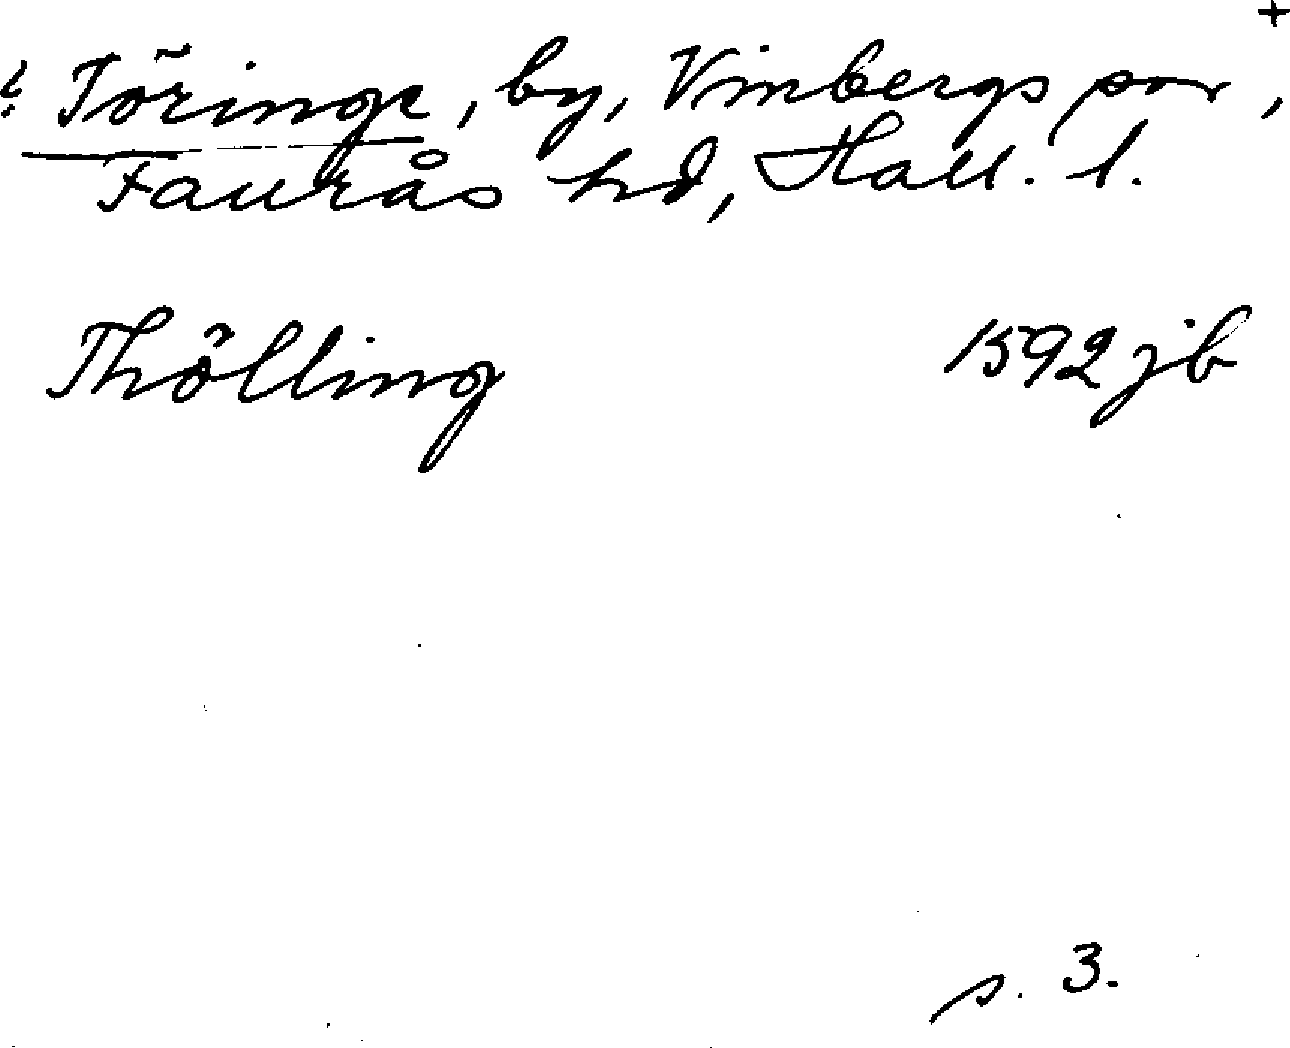 +
! Töringe, by, Vinbergs sn,
Faurås hd, Hall. l.
Thölling 1592 jb
s. 3.